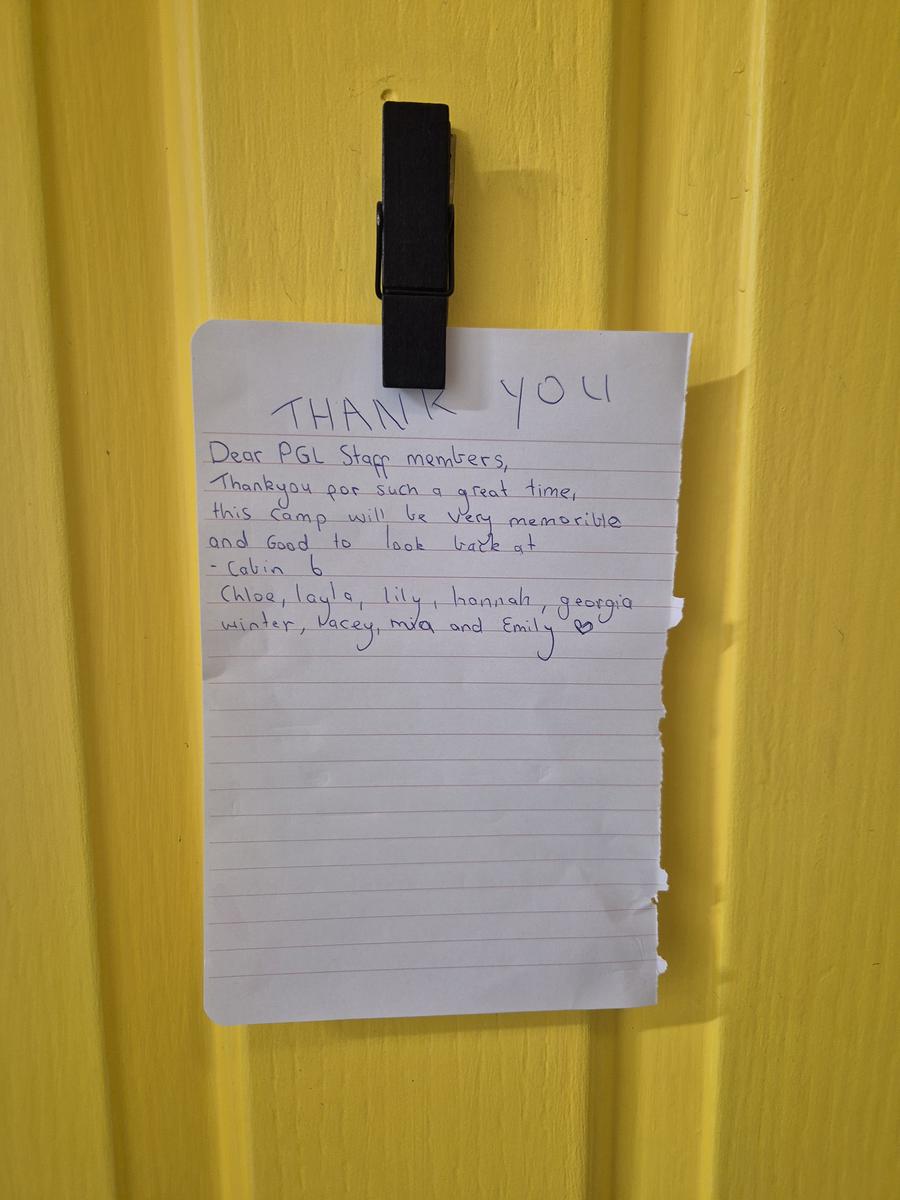 THANK YOU
Dear PGL Staff members,
Thankyou for such a great time,
this camp will be very memorible
and Good to look back at
- Cabin 6
Chloe, layla, lily, hannah, georgia
winter, Lacey, mia and Emily ♡